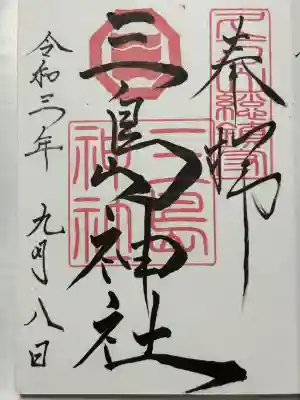 奉拝
三島神社
三島神社
令和三年 九月八日